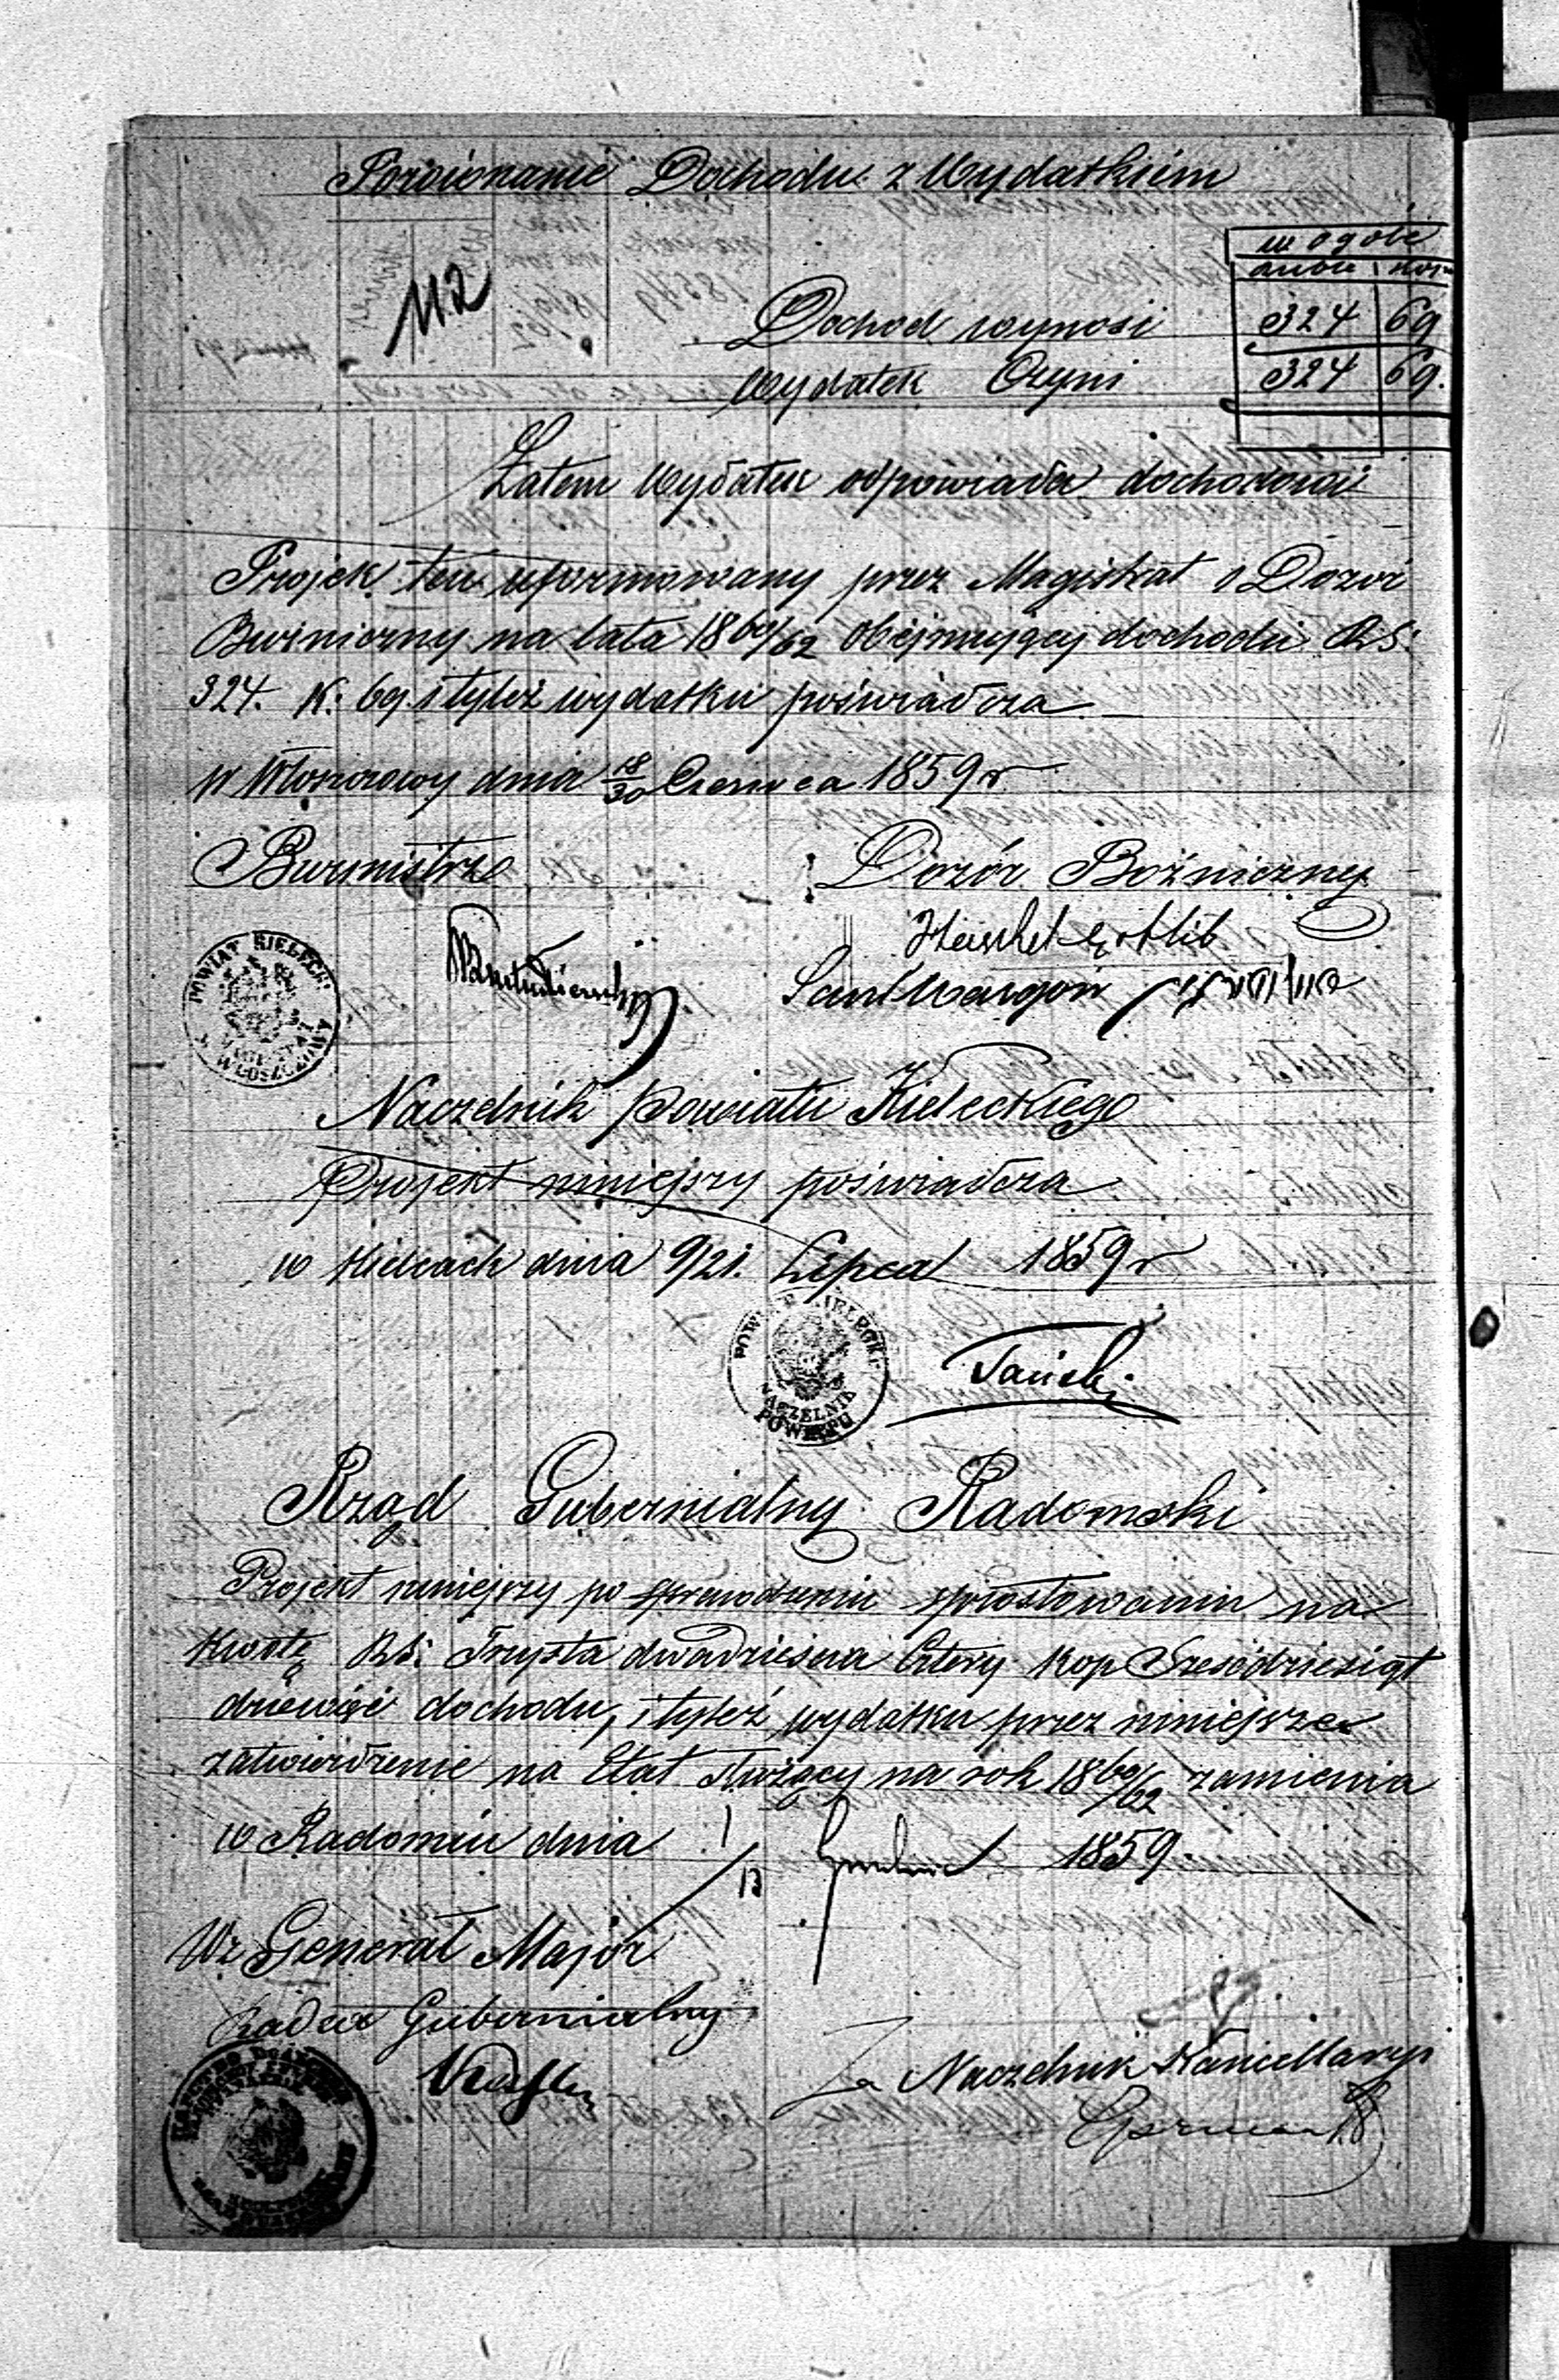 Porównanie Dochodu z Wydatkiem
w ogóle
112
Dochód wynosi 324 69
Wydatek Czyni 324 69.
Zatem Wydatek odpowiada dochodowi
Projek ten uformowany przez Magistrat i Dozór
Bużniczny na lata 1860/62 obejmujący dochodu RS:
324. K: 69. i tyleż wydatku poświadcza
w Włoszczowy dnia 18/30 Czerwca 1859 r
Burmistrz Dozór Bożniczny
Herschel
POWIAT KIELECKI
M. WŁOSZCZOWA
Naczelnik Powiatu Kieleckiego
Projekt niniejszy poświadcza
w Kielcach dnia 9/21. Lipca 1859 r
POWIAT KIELECKI
NACZELNIK
POWIATU
Tański
Rząd Gubernialny Radomski
Projekt niniejszy po sprostowaniu na
Kwotę RS: Trzysta dwadzieścia Cztery Kop Sześćdziesiąt
dziewięć dochodu, i tyleż wydatku przez niniejsze
zatwierdzenie na Etat służący na rok 1860/62 zamienia
w Radomiu dnia 1/13 Grudnia 1859.
Wz Generał Major
Radca Gubernialny
Za Naczelnik Kancellaryi